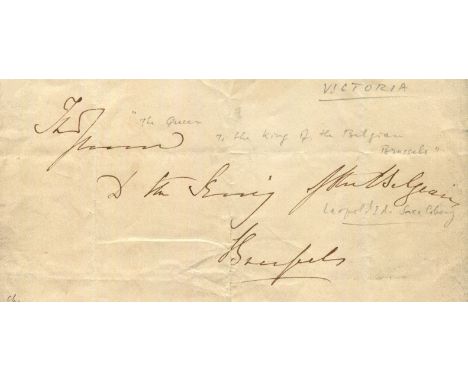 VICTORIA
The
"The Queen
Queen
To the King of the Belgian
Brussels"
To the King of the Belgians
Leopold I d. Saxe Coburg
Brussels